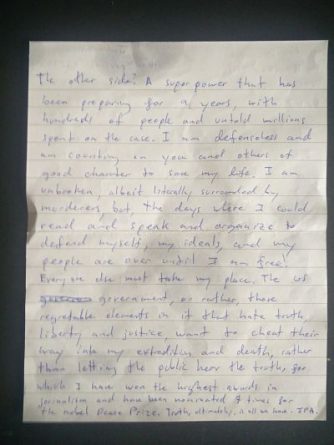 The other side? A superpower that has
been preparing for 9 years, with
hundreds of people and untold millions
spent on the case. I am defenseless and
am counting on you and others of
good character to save my life. I am
unbroken, albeit literally surrounded by
murderers, but, the days where I could
read and speak and organize to
defend myself, my ideals, and my
people are over until I am free!
Everyone else must take my place. The US
government, or rather, those
regrettable elements in it that hate truth,
liberty and justice, want to cheat their
way into my extradition and death, rather
than letting the public hear the truth, for
which I have won the highest awards in
journalism and have been nominated 7 times for
the nobel Peace Prize. Truth, ultimately, is all we have. JPA.